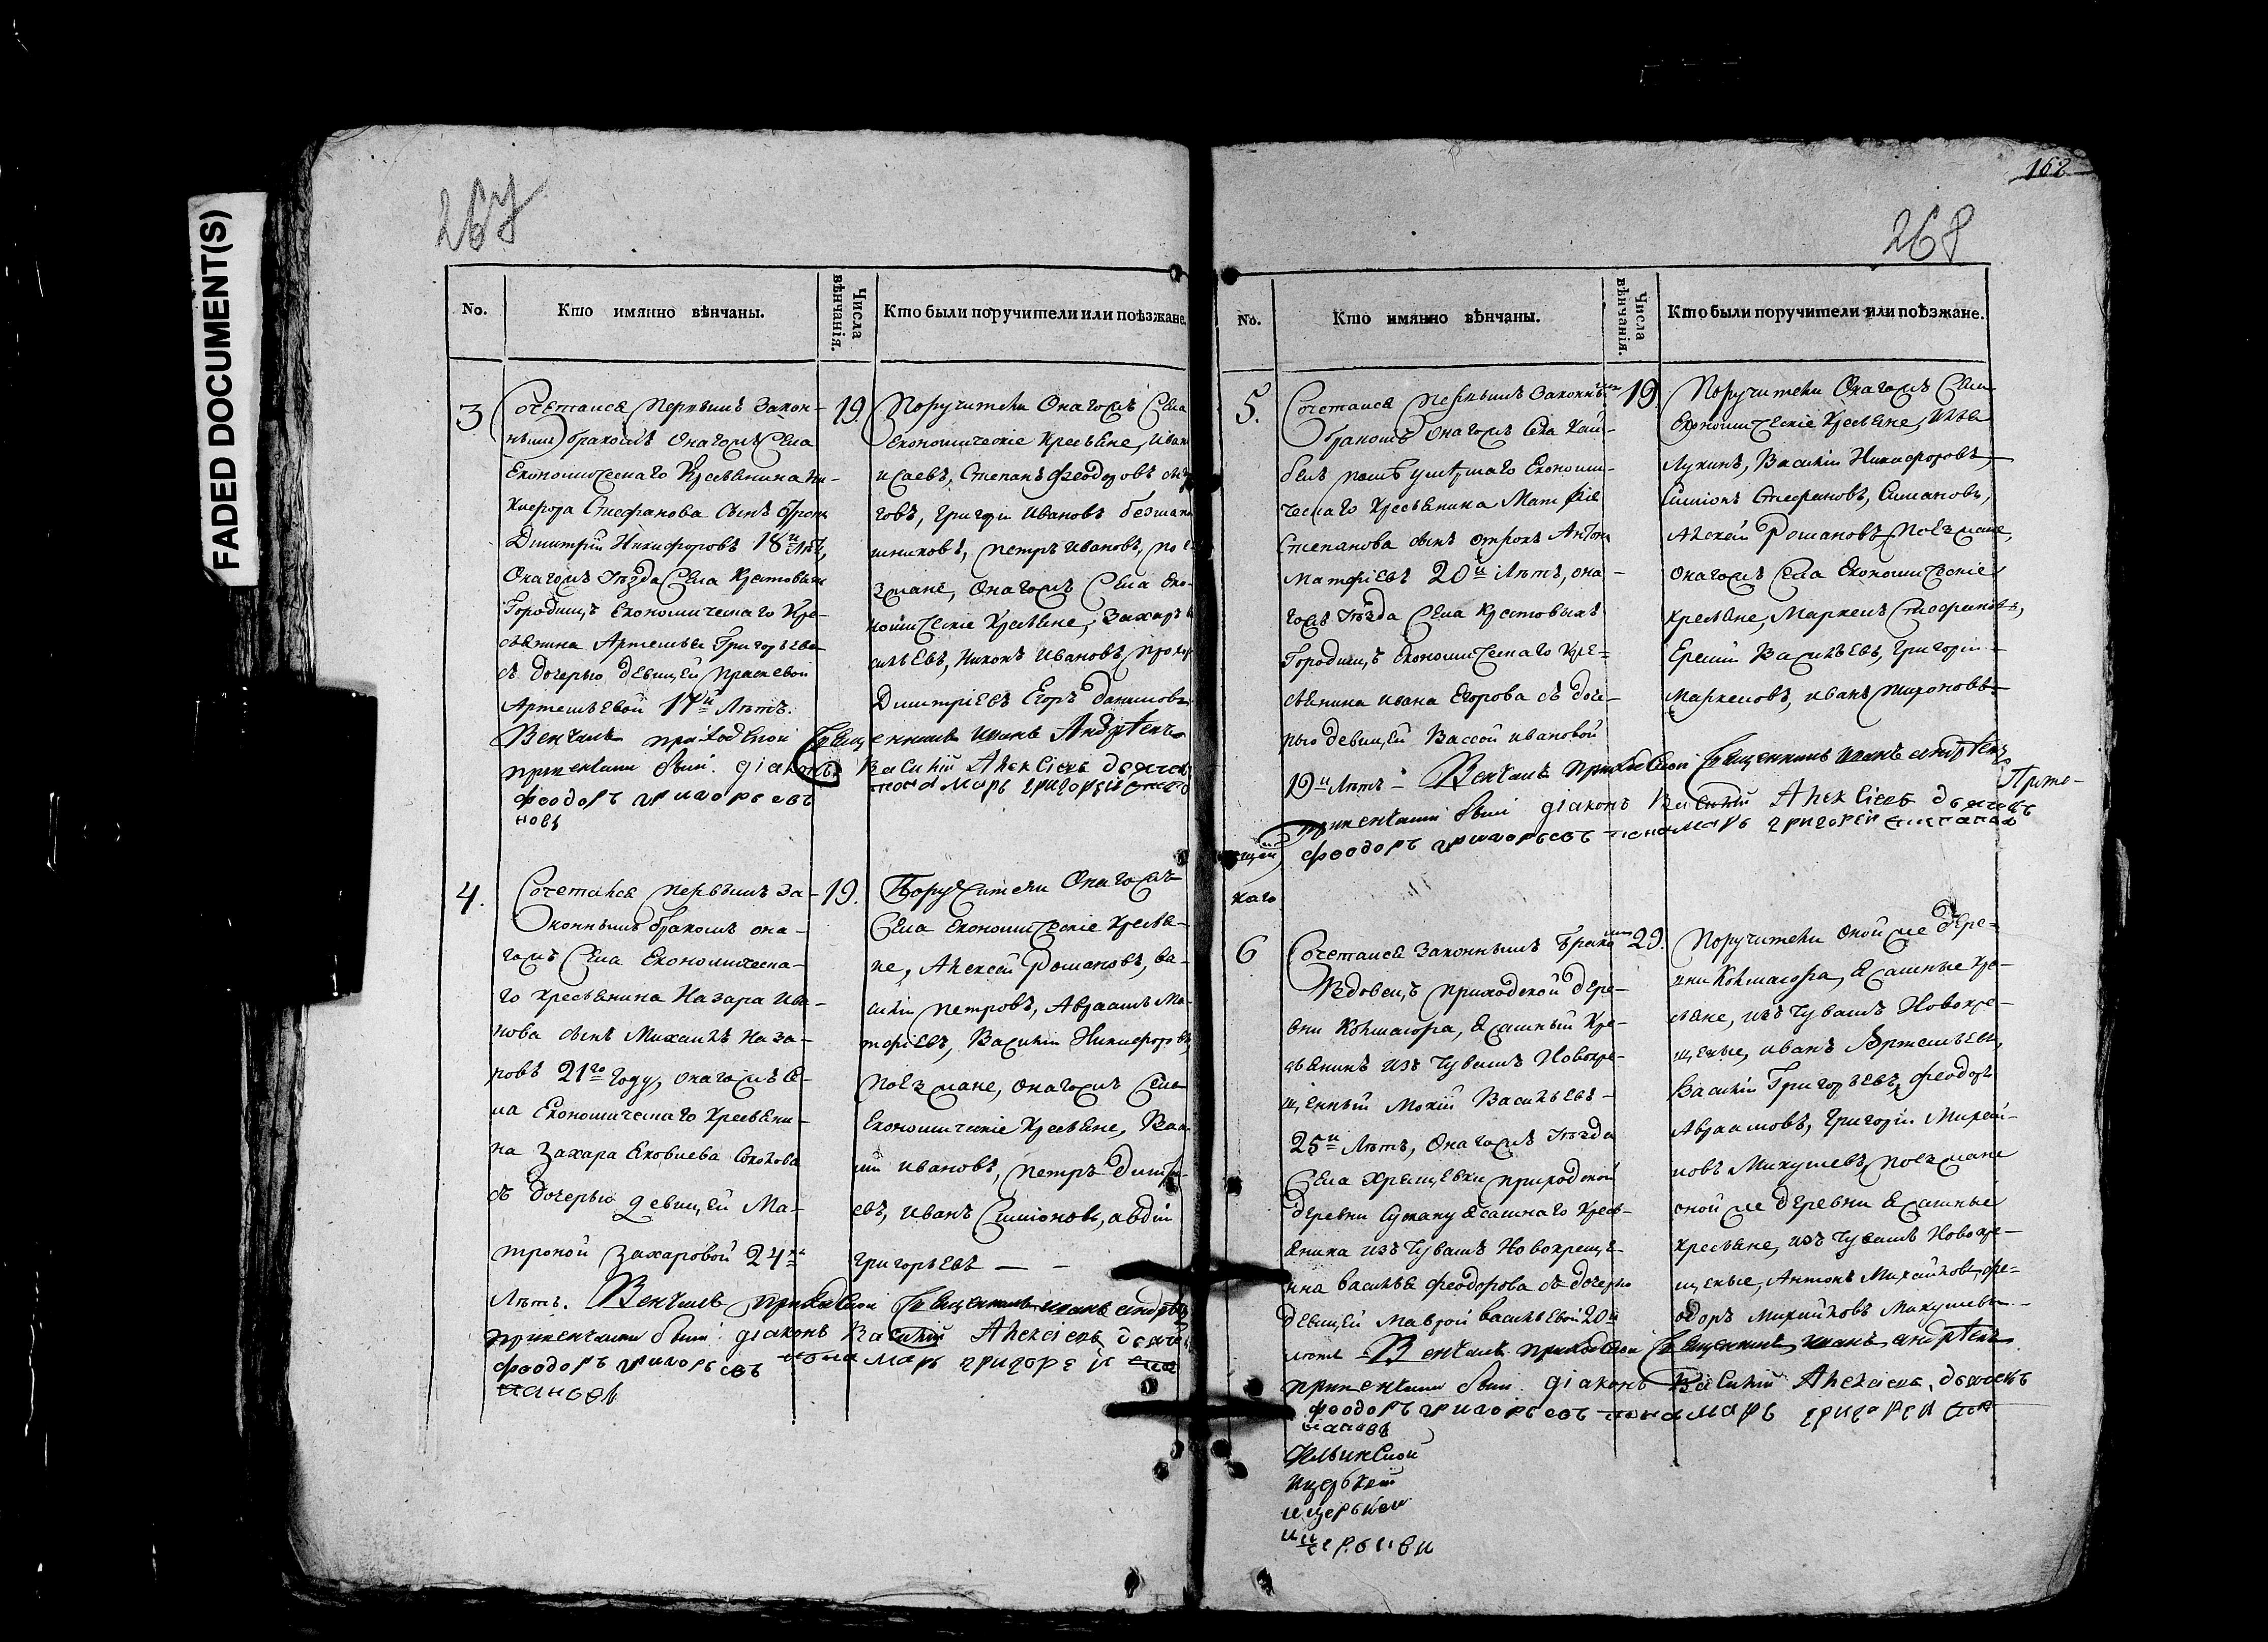 FADED DOCUMENT(S)
267
No.
Кто имянно вѣнчаны.
Числа вѣнчанія.
Кто были поручители или поѣзжане.
3
Сочетался первымъ закон-
нымъ бракомъ онагожъ села
Економическаго крестьянина Ни-
кифора Стефанова сынъ отрокъ
Димитрій Никифоровъ 18и лѣтъ,
Онагожъ уѣзда села Крестовыхъ
Городищъ економическаго кре-
стьянина Артемья Григорьева
съ дочерью девицей Праскевой
Артемьевой 17и Лѣтъ.
Венчалъ приходской
19.
Поручители Онагожъ Села
економическіе крестьяне, Иван
Исаевъ, Степанъ Феодоровъ
говъ, Григори Ивановъ
шниковъ, Петръ Ивановъ, пое
зжане, Онагожъ Села Еко-
номическіе Крестьяне, Захаръ
сильевъ, Никонъ Ивановъ Прохор
Димитріевъ Егоръ Данилова
Священникъ Иванъ Андреевъ
при венчаніи были діаконъ Василій Алексіевъ дьячекъ
Феодоръ Григорьевъ пономарь Григорей Степа
новъ
4.
Сочетался первымъ за-
коннымъ бракомъ она-
гожъ Села Економическа-
го крестьянина Назара Ива-
нова сынъ Михаилъ Наза-
ровъ 21го году, онагожъ се-
ла Економическаго крестьяни-
на Захара Яковлева Соколова
съ дочерью девицей Ма-
троной Захаровой 24хъ
Лѣтъ. Венчалъ приходской Священникъ Иванъ Андреевъ
при венчаніи были діаконъ Василій Алексіевъ дьяче
Феодоръ Григорьевъ пономарь Григорей Сте
пановъ
19.
Поручители Онагожъ
Села економическіе крестья-
не, Алексей Романовъ, Ва-
силіи Петровъ, Авраамъ Ма-
тфіевъ, Василіи Никифоровъ,
поезжане, онагожъ Села
Економическіе Крестьяне, Васи
лій Ивановъ, Петръ Димитрі-
евъ, Иванъ Симіоновъ, Авдіи
Григорьевъ — –
162
268
No.
Кто имянно вѣнчаны.
Числа вѣнчанія.
Кто были поручители или поѣзжане.
5.
Сочетался первымъ законнымъ
бракомъ онагожъ села Кай-
белъ умершаго Економи-
ческаго Крестьянина Матфіе
Степанова сынъ отрокъ Антон
Матфіевъ 20и Лѣтъ, она-
гожъ Уѣзда Села Крестовыхъ
Городищъ економическаго кре-
стьянина Ивана Егорова съ доче-
рью девицей Вассой Ивановой
19и Лѣтъ – Венчалъ приходской Священникъ Иванъ Андреевъ
при венчаніи были діаконъ Василій Алексіевъ дьячекъ
Феодоръ Григорьевъ пономарь Григорей Степановъ
19.
Поручители Онагожъ Села
Економическіе Крестьяне, Илья
Лукинъ, Василіи Никифоровъ,
Симіонъ Стефановъ, Симановъ,
Алексей Романовъ поезжане,
онагожъ села Економическіе
крестьяне, Маркелъ Стефановъ,
Еремій Васильевъ, Григоріи
Маркеловъ, Иванъ Тихоновъ
Прото-
каго
6
Сочетался законнымъ бракомъ
Вдовецъ приходской дере-
вни Кокмаюра, Ясашный Кре-
стьянинъ изъ Чувашъ Новокре-
щенный Мокій Васильевъ –
25и Лѣтъ, Онагожъ Уѣзда
Села Хрящевки приходской
деревни ясашнаго Кресть-
янина изъ Чувашъ Новокреще-
нна Василья Феодорова съ дочерью
девицей Маврой Васильевой 20и
лѣтъ – Венчалъ приходской Священникъ Иванъ Андреевъ
при венчаніи были діаконъ Василій Алексіевъ, дьячекъ
Феодоръ Григорьевъ пономарь Григорей Сте
пановъ
29.
Поручители Оной же дере-
вни Кокмаюра, Ясашные Кре-
стьяне, изъ Чувашъ Новокре-
щеные, Иванъ Артемьевъ,
Василіи Григорьевъ, Феодоръ
Авраамовъ, Григоріи Михай-
ловъ Микушевъ, поезжане
оной же деревни Ясашные
Крестьяне, изъ Чувашъ Новокре-
щеные, Антонъ Михайловъ, Фе-
одоръ Михайловъ Микушевъ. –
Ильинской